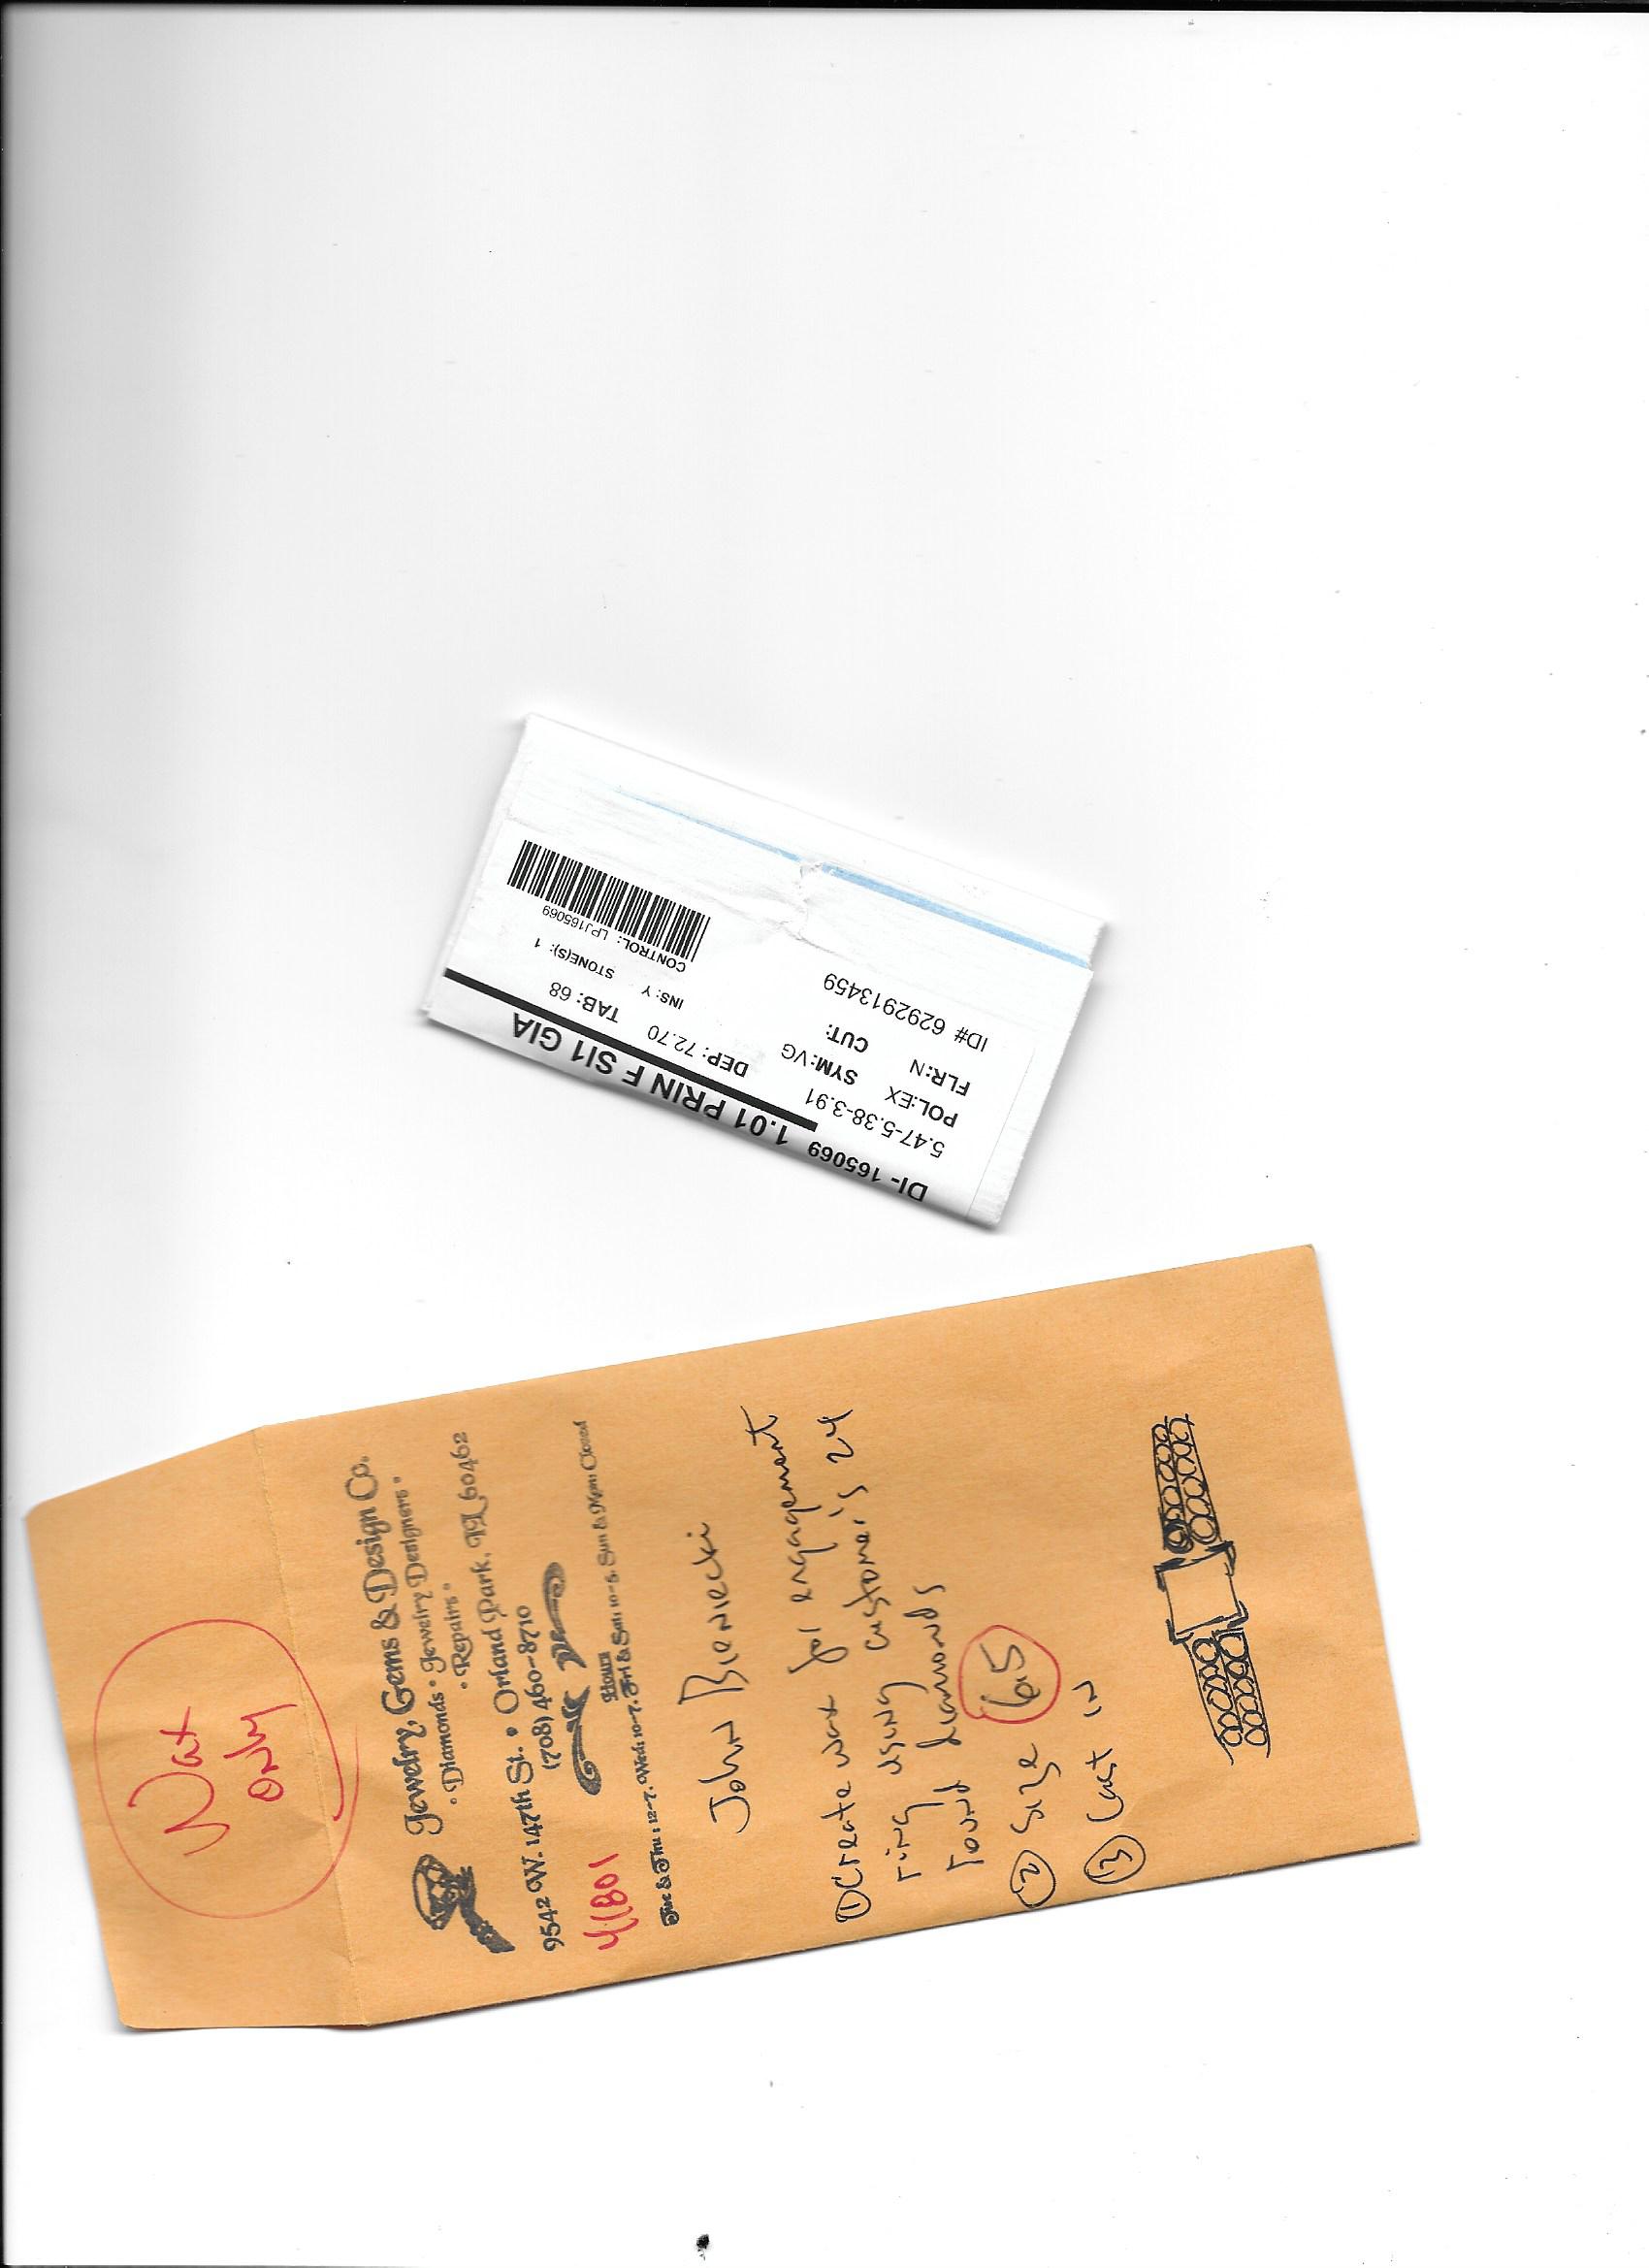 DI- 165069 1.01 PRIN F SI1 GIA
5.47-5.38-3.91 DEP: 72.70 TAB: 68
POL:EX SYM:VG INS: Y STONE(S): 1
FLR:N CUT: CONTROL: LPJ165069
ID# 6292913459
Wax
only
Jewelry, Gems & Design Co.
• Diamonds • Jewelry Designers •
• Repairs •
9542 W. 147th St. • Orland Park, IL 60462
(708) 460-8710
41801
Hours
Tue & Thu: 12-7, Wed: 10-7, Fri & Sat: 10-5, Sun & Mon: Closed
John Bieniecki
① Create wax for engagement
ring using customer's 24
round diamonds
② Size 6.5
③ Cast in